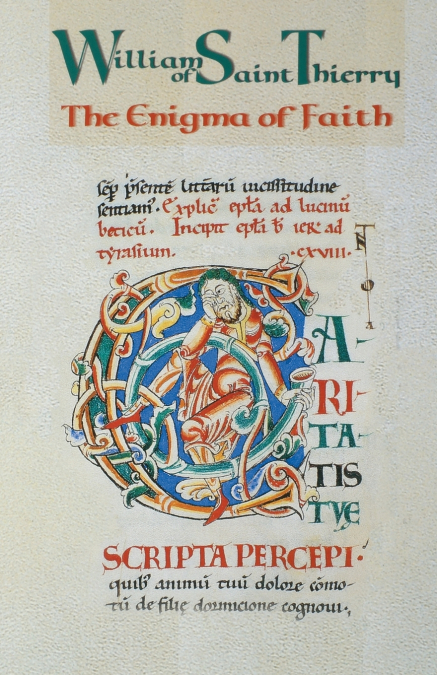 William of Saint Thierry
The Enigma of Faith
sēp p̄sentē littārū uicissitudine
sentiam. Explic̄ ep̄ta ad lucinū
beticū. Incipit ep̄ta b̄ ier ad
tyrasium. .cxviii.
CARITATIS
TVE
SCRIPTA PERCEPI.
quib' animū tuū dolore cōmo-
tū de filie dormicione cognoui.